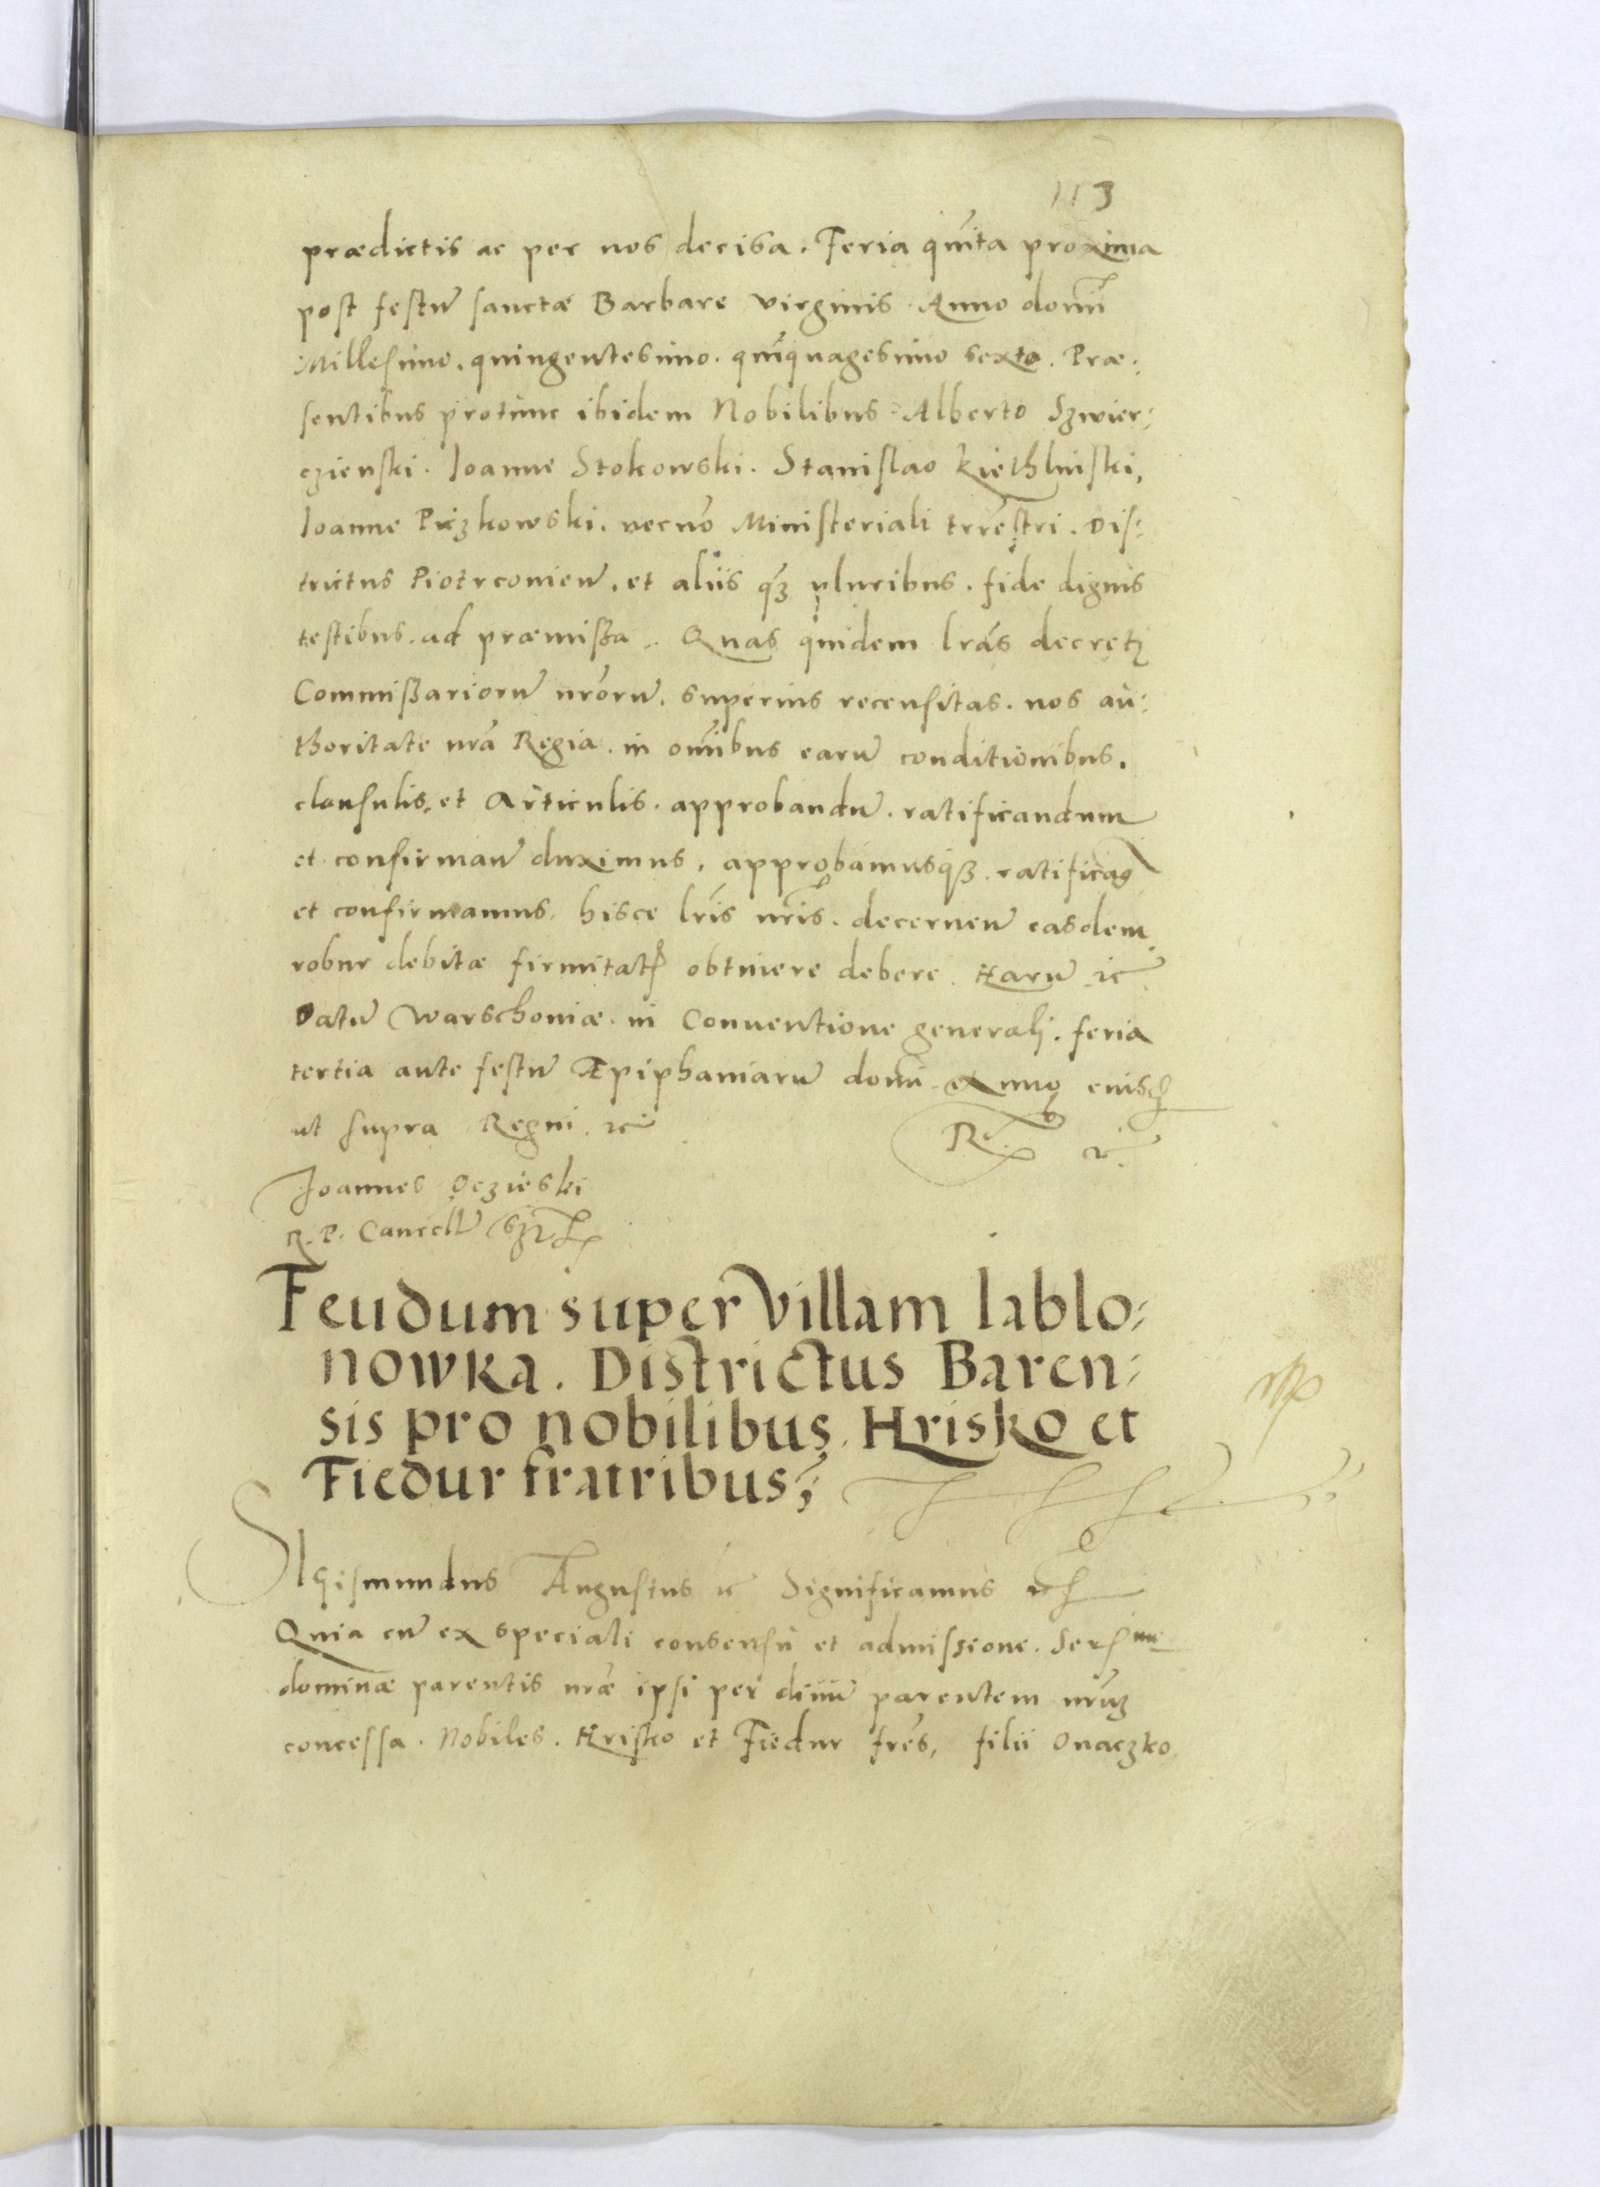 113
prædictis ac per nos decisa. Feria quīta proxima
post festū sanctæ Barbare virginis. Anno domī
Millesimo. quingentesimo. quīquagesimo sexto. Præ:
sentibus protunc ibidem Nobilibus. Alberto Szwier:
czienski. Ioanne Stokowski. Stanislao Kiethlinski,
Ioanne Piczkowski. necnō Ministeriali trrēstri. Dis:
trictus Piotrconien̄. et aliis qz pluribus. fide dignis
testibus. ad præmißa. Quas quidem lrās decreti
Commißariorū nrōrū. superius recensitas. nos au:
thoritate nrā Regia. in omībus earū conditionibus.
clausulis. et Articulis. approbandū. ratificandum
et confirman̄ duximus. approbamusqз. ratificaꝯ
et confirmamus. hisce lrīs nrīs. decernen̄ easdem
robur debitæ firmitatꝭ obtinere debere. Harū ꝛc
Datū Warschoniæ. in Conuentione generali. feria
tertia ante festū Æpiphaniarū domī. Anno eiusꝗ
ut supra Regni. ꝛc
Rx ꝛc
Joannes Oczieski
R. P. Cancell̄ sßt
Feudum super villam Iablo:
nowka. Districtus Baren:
sis pro nobilibus. Hrisko et
Fiedur fratribus;
Sigismundus Augustus ꝛc Significamus ꝛc
Quia cū ex speciali consensu et admissione. Serᵐᵉ
dominæ parentis nræ ipsi per diuū parentem nrūз
concessa. Nobiles. Hrisko et Fiedur frēs, filii Onaczko